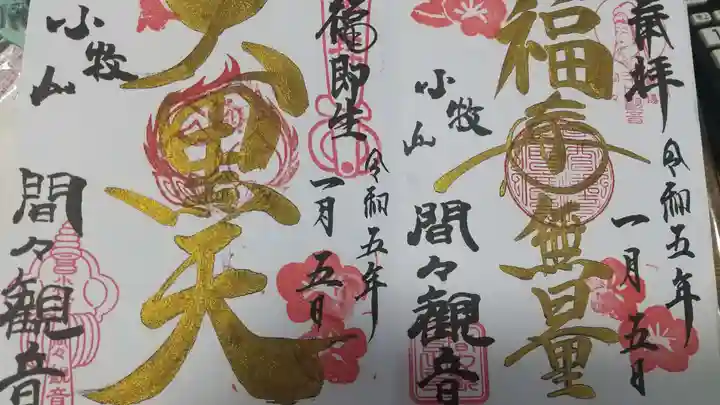 奉拝
令和五年
一月五日
福寿無量
小牧
山
間々観音
福即生
令和五年
一月五日
大黒天
小牧
山
間々観音